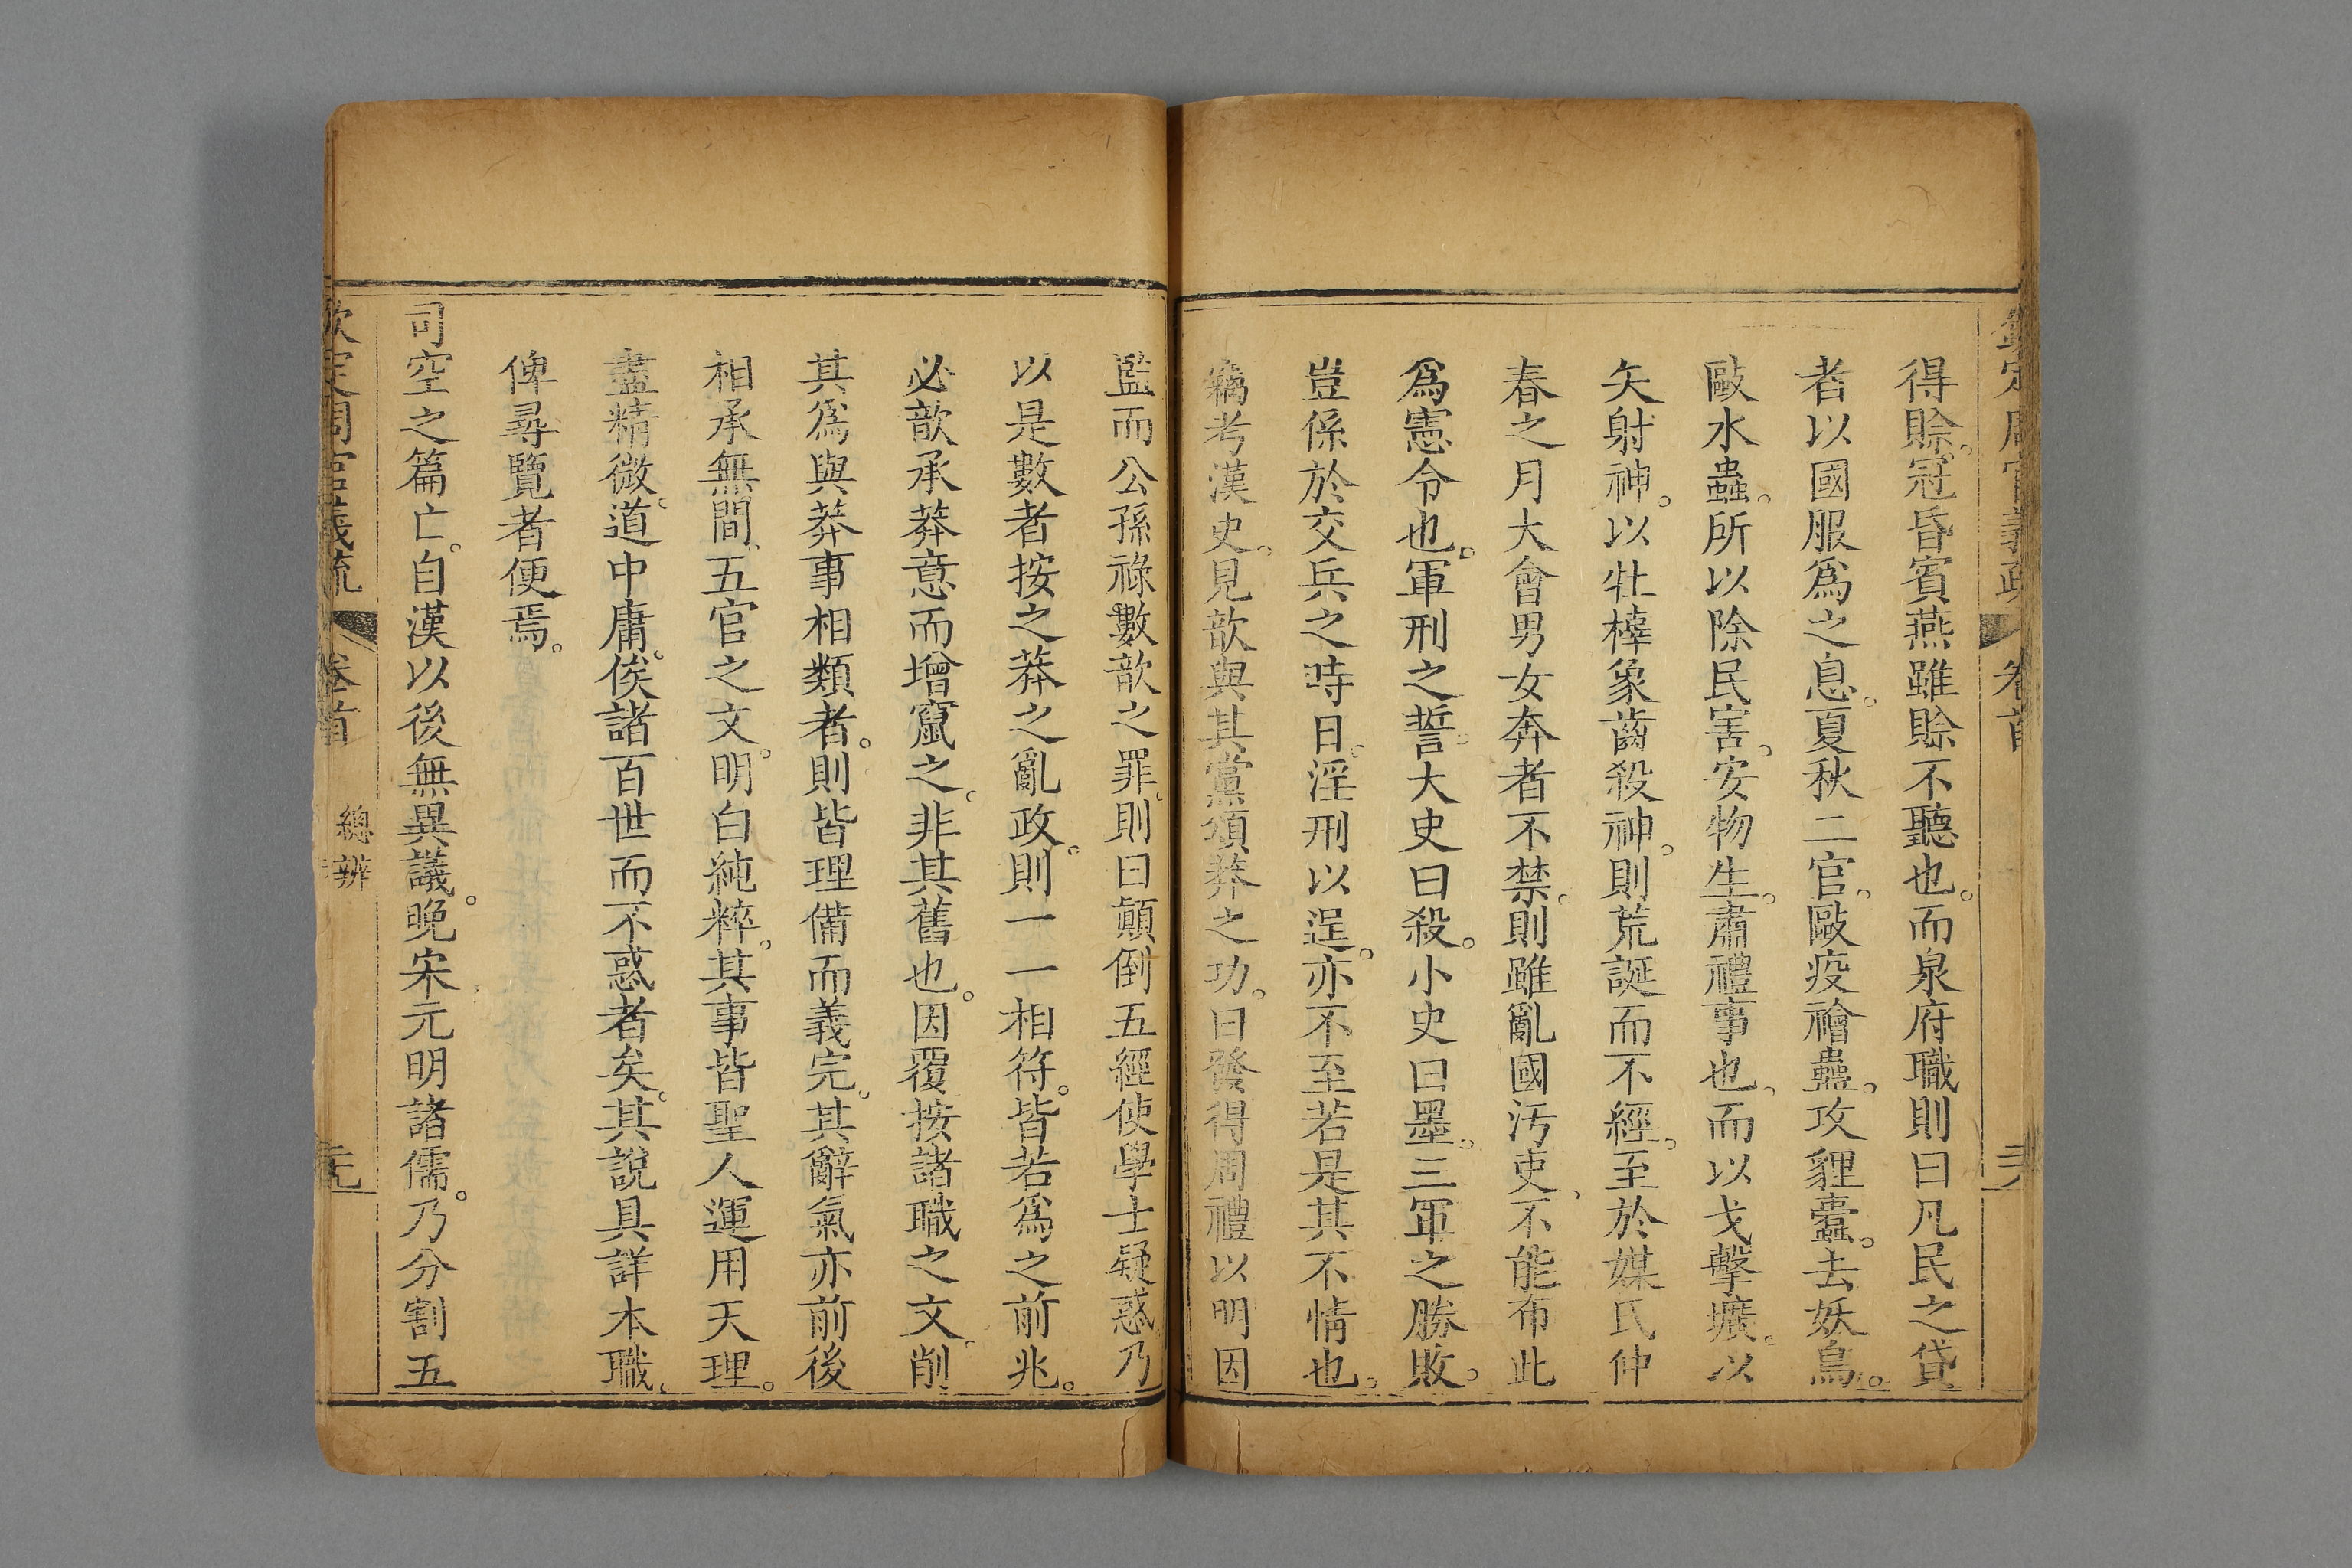 得賒。冠昏賓燕雖賒不聽也。而泉府職則曰凡民之貸
者以國服爲之息。夏秋二官。毆疫禬蠱。攻貍蠹。去妖鳥。
毆水蟲。所以除民害。安物生。肅禮事也、而以戈擊壙。以
矢射神。以牡橭象齒殺神。則荒誕而不經。至於媒氏仲
春之月大會男女奔者不禁。則雖亂國汚吏、不能布此
爲憲令也。軍刑之誓。大史曰殺。小史曰墨。三軍之勝敗。
豈係於交兵之時日。淫刑以逞。亦不至若是其不情也。
竊考漢史。見歆與其黨頌莽之功。曰發得周禮以明因
監而公孫祿數歆之罪。則曰顛倒五經使學士疑惑乃
以是數者按之莽之亂政。則一一相符。皆若爲之前兆。
必歆承莽意而增竄之。非其舊也。因覆按諸職之文。削
其爲與莽事相類者。則皆理備而義完。其辭氣亦前後
相承無間。五官之文。明白純粹。其事皆聖人運用天理。
盡精微。道中庸。俟諸百世而不惑者矣。其說具詳本職。
俾尋覽者便焉。
司空之篇亡。自漢以後無異議。晚宋元明諸儒。乃分割五
欽定周官義疏
卷首
總辨